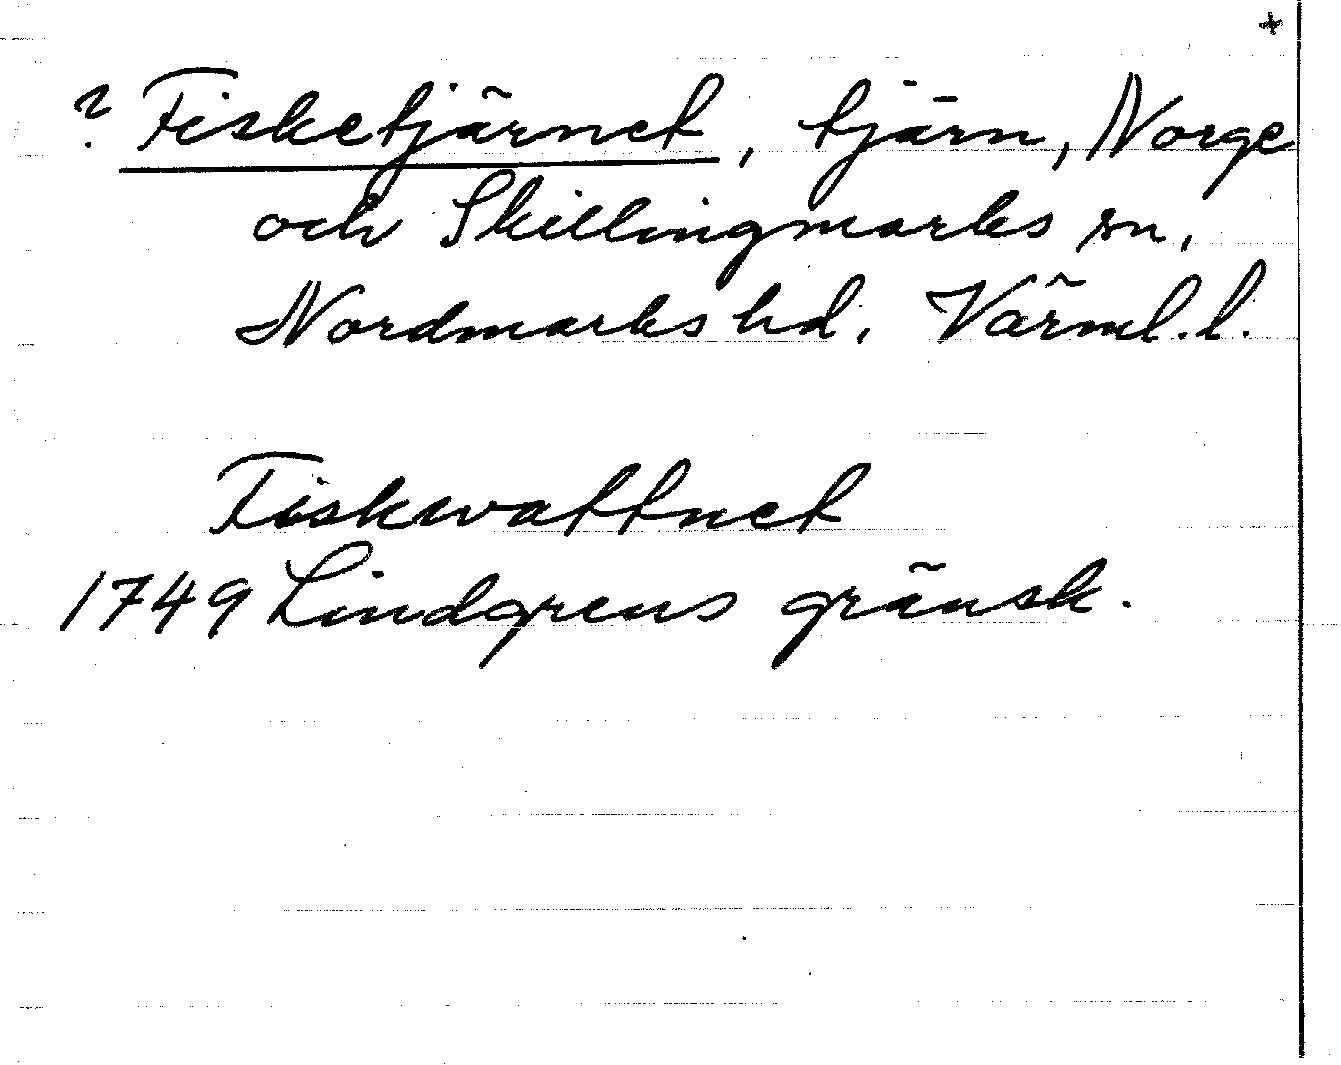 +
? Fisketjärnet, tjärn, Norge
och Skillingmarks sn,
Nordmarks hd, Värml. l.
Fiskwattnet
1749 Lindgrens gränsk.